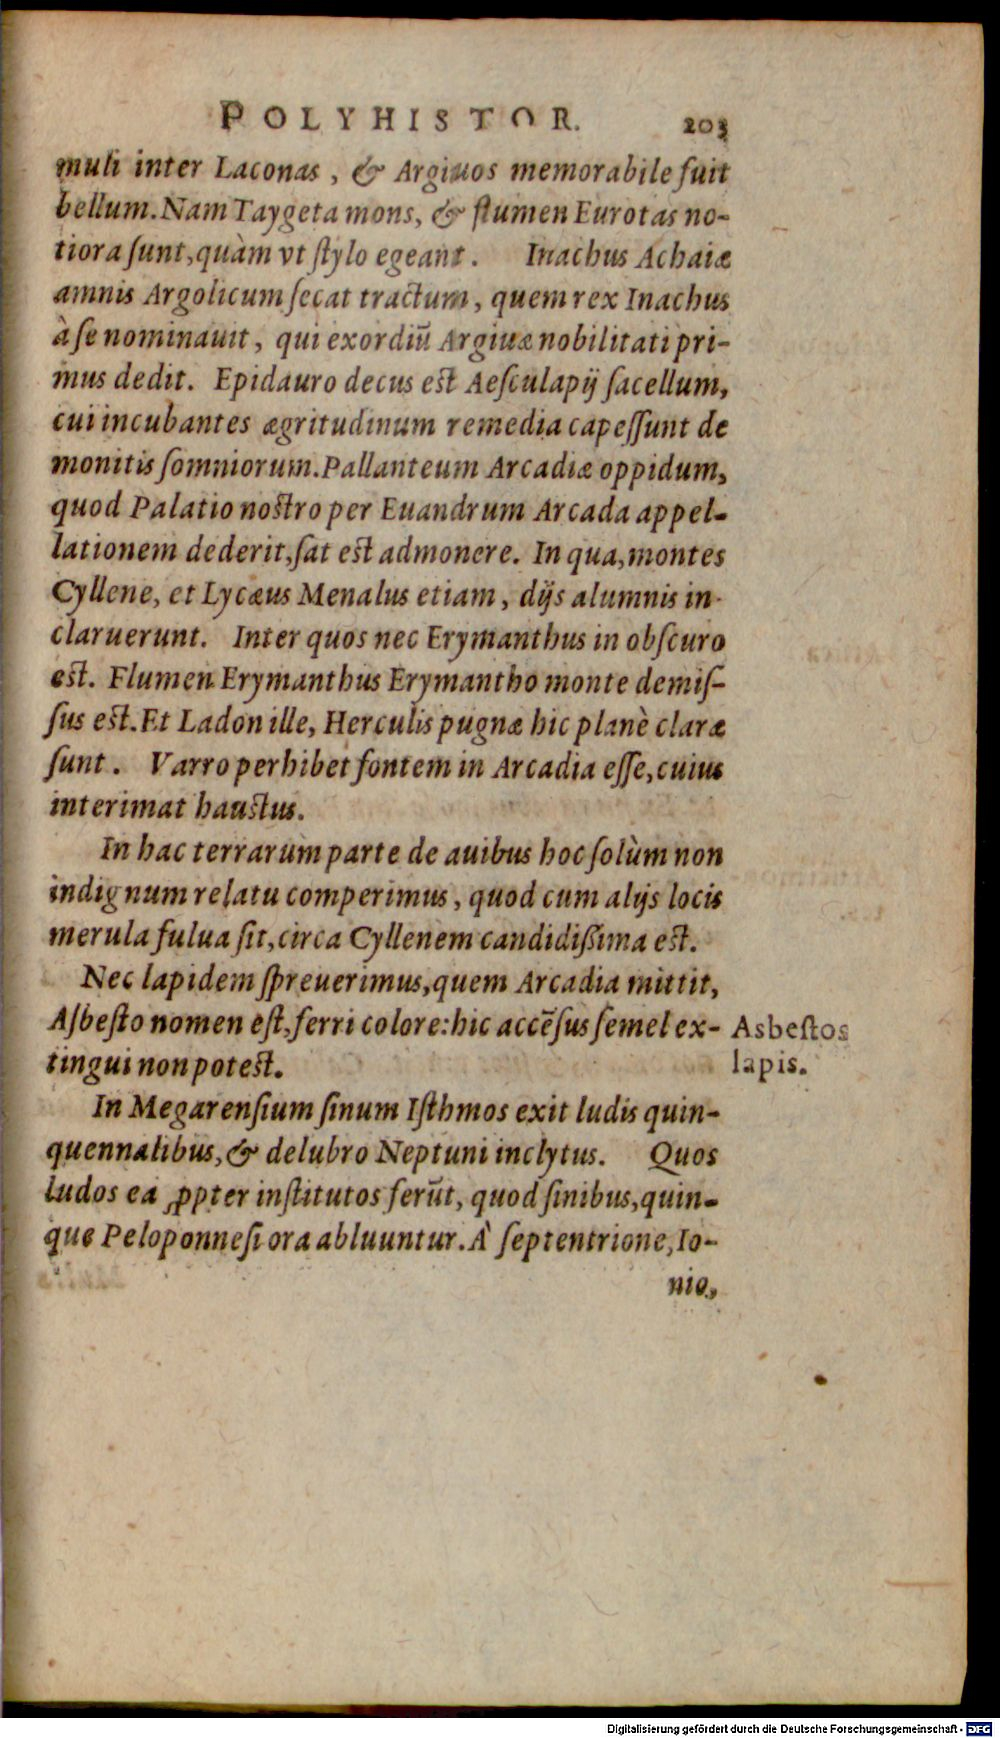 POLYHISTOR. 203
muli inter Laconas, & Argiuos memorabile fuit
bellum. Nam Taygeta mons, & flumen Eurotas no-
tiora sunt, quàm vt stylo egeant. Inachus Achaiæ
amnis Argolicum secat tractum, quem rex Inachus
à se nominauit, qui exordiū Argiuæ nobilitati pri-
mus dedit. Epidauro decus est Aesculapij sacellum,
cui incubantes ægritudinum remedia capessunt de
monitis somniorum. Pallanteum Arcadiæ oppidum,
quod Palatio nostro per Euandrum Arcada appel-
lationem dederit, sat est admonere. In qua, montes
Cyllene, et Lycæus Menalus etiam, dijs alumnis in-
claruerunt. Inter quos nec Erymanthus in obscuro
est. Flumen Erymanthus Erymantho monte demis-
sus est. Et Ladon ille, Herculis pugnæ hic planè claræ
sunt. Varro perhibet fontem in Arcadia esse, cuius
interimat haustus.
In hac terrarum parte de auibus hoc solùm non
indignum relatu comperimus, quod cum alijs locis
merula fulua sit, circa Cyllenem candidißima est.
Nec lapidem spreuerimus, quem Arcadia mittit,
Asbesto nomen est, ferri colore: hic accēsus semel ex-
tingui non potest.
Asbestos
lapis.
In Megarensium sinum Isthmos exit ludis quin-
quennalibus, & delubro Neptuni inclytus. Quos
ludos ea ꝓpter institutos ferūt, quod sinibus, quin-
que Peloponnesi ora abluuntur. À septentrione, Io-
nio,
Digitalisierung gefördert durch die Deutsche Forschungsgemeinschaft - DFG